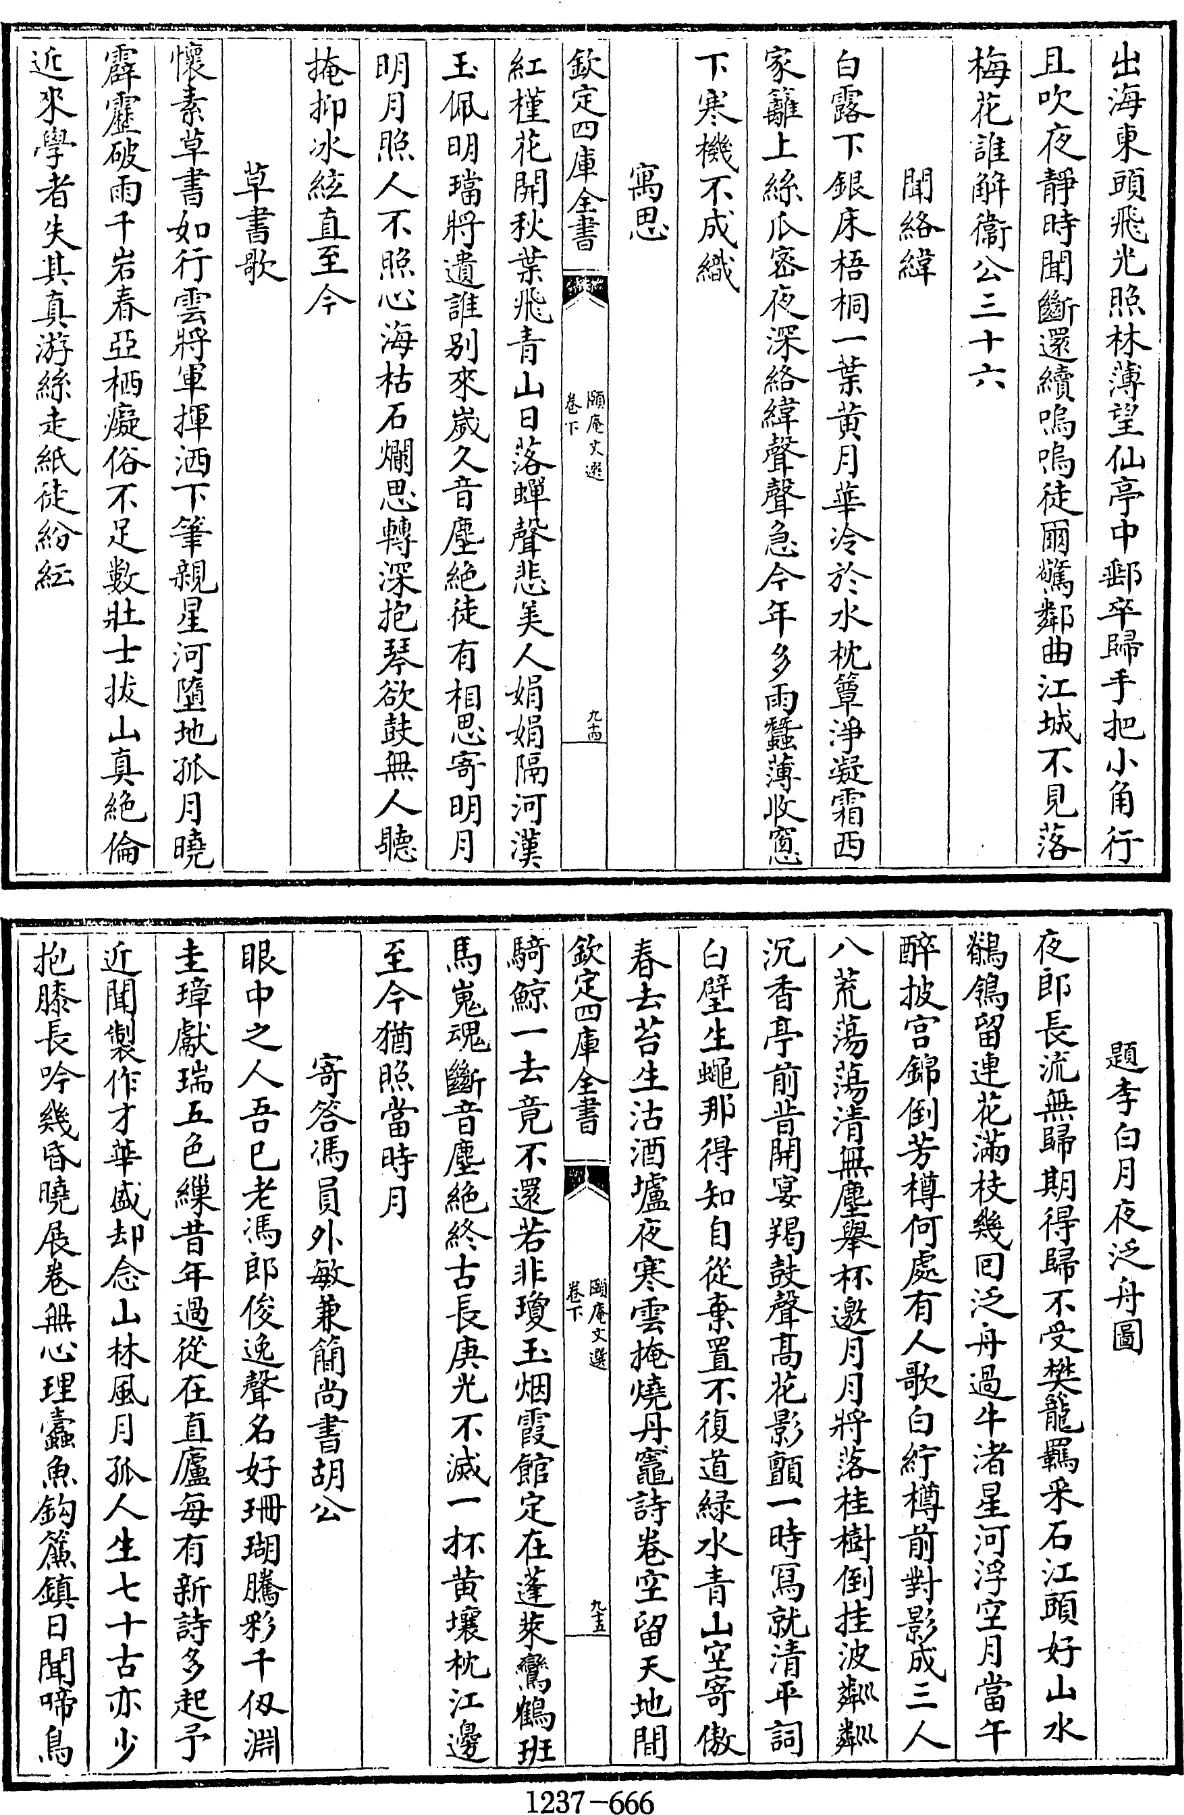 出海東頭飛光照林薄望仙亭中郵卒歸手把小角行
且吹夜靜時聞斷還續嗚嗚徒爾驚鄰曲江城不見落
梅花誰解衞公三十六
聞絡緯
白露下銀床梧桐一葉黄月華冷於水枕簟淨凝霜西
家籬上絲瓜密夜深絡緯聲聲急今年多雨蠶薄收窻
下寒機不成織
寓思
欽定四庫全書
頤庵文選
卷下
九十四
紅槿花開秋葉飛青山日落蟬聲悲美人娟娟隔河漢
玉佩明璫將遺誰别來歲久音塵絶徒有相思寄明月
明月照人不照心海枯石爛思轉深抱琴欲鼓無人聽
掩抑冰絃直至今
草書歌
懷素草書如行雲將軍揮洒下筆親星河墮地孤月曉
霹靂破雨千岩春亞栖癡俗不足數壯士拔山真絶倫
近來學者失其真游絲走紙徒紛紜
題李白月夜泛舟圖
夜郎長流無歸期得歸不受樊籠羈采石江頭好山水
鶺鴒留連花滿枝幾回泛舟過牛渚星河浮空月當午
醉披宫錦倒芳樽何處有人歌白紵樽前對影成三人
八荒蕩蕩清無塵舉杯邀月月將落桂樹倒挂波粼粼
沉香亭前昔開宴羯鼓聲髙花影顫一時寫就清平詞
白璧生蠅那得知自從棄置不復道緑水青山空寄傲
春去苔生沽酒壚夜寒雲掩燒丹竈詩卷空留天地間
欽定四庫全書
頤庵文選
卷下
九十五
騎鯨一去竟不還若非瓊玉烟霞館定在蓬萊鸞鶴班
馬嵬魂斷音塵絶終古長庚光不滅一抔黄壤枕江邊
至今猶照當時月
寄答馮員外敏兼簡尚書胡公
眼中之人吾已老馮郎俊逸聲名好珊瑚騰彩千仭淵
圭璋獻瑞五色繅昔年過從在直廬每有新詩多起予
近聞製作才華盛却念山林風月孤人生七十古亦少
抱膝長吟幾昏曉展卷無心理蠹魚鈎簾鎮日聞啼鳥
1237-666